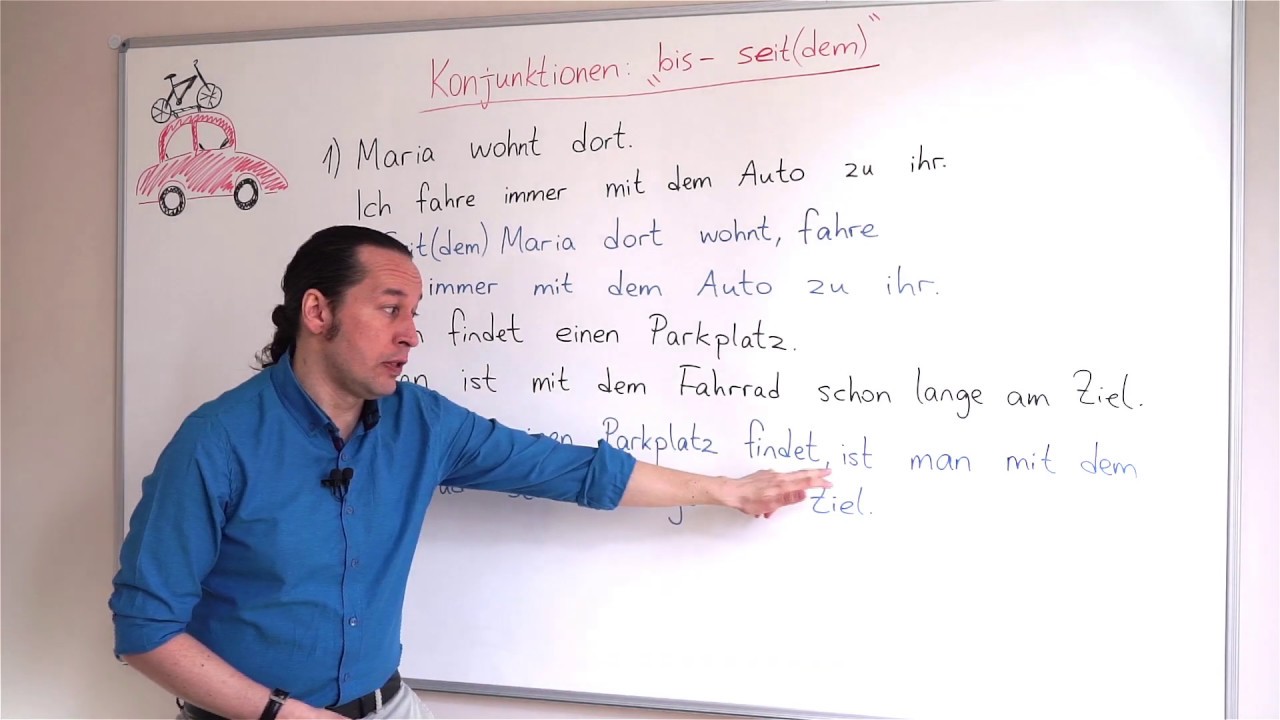 Konjunktionen: „bis - seit(dem)"
1) Maria wohnt dort.
Ich fahre immer mit dem Auto zu ihr.
it(dem) Maria dort wohnt, fahre
immer mit dem Auto zu ihr.
findet einen Parkplatz.
ist mit dem Fahrrad schon lange am Ziel.
Parkplatz findet, ist man mit dem
Ziel.